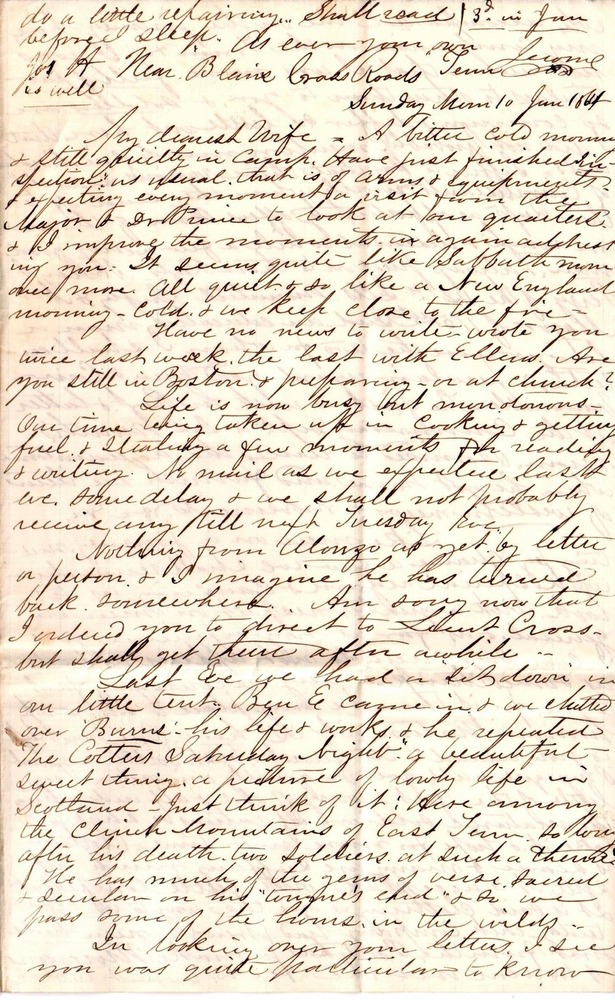 do a little repairing. Shall read 3d in Jan
before I sleep. As ever your own Jerome
Jos H Near "Blains Cross Roads" Tenn
is well
Sunday Morn 10 Jan 1864
My dearest Wife = A bitter cold morning
& still quietly in Camp. Have just finished "in-
spection" as usual. that is of arms & equipments
& expecting every moment a visit from the
Major & Dr Prince to look at our quarters.
& I improve the moments in again address
ing you. It seems quite like Sabbath morn
once more. All quiet & so like a New England
morning - cold. & we keep close to the fire -
Have no news to write. wrote you
twice last week. the last with Ellens. Are
you still in Boston? & preparing - or at church?
Life is now busy but monotonous -
Our time being taken up in cooking & getting
fuel. & stealing a few moments for reading
& writing. No mail as we expected last
eve. some delay & we shall not probably
receive any till next Tuesday eve.
Nothing from Alonzo as yet by letter
or person. & I imagine he has turned
back. somewhere. Am sorry now that
I ordered you to direct to Lieut Cross -
but shall get them after awhile -
Last Eve we had a sit down in
our little tent. Ben E came in & we chatted
over "Burns" - his life & works. & he repeated
"The Cotters Saturday Night" a beautiful
sweet thing. a picture of lowly life in
Scotland - Just think of it! Here among
the Clinch Mountains of East Tenn. so long
after his death. two soldiers. at such a theme!
He has much of the gems of verse. sacred
& secular on his "tongue's end" & so we
pass some of the hours. in the wilds -
In looking over your letters, I see
you was quite particular to know